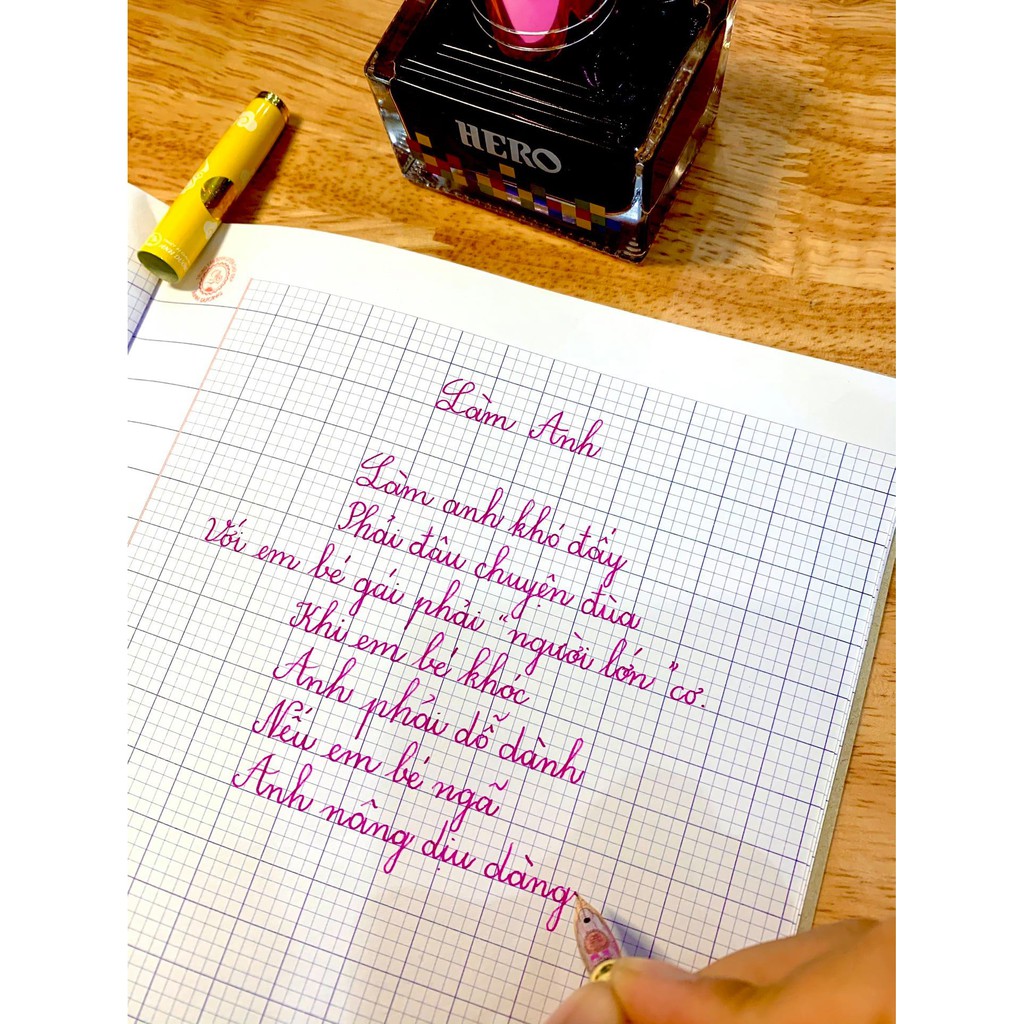 HERO
Làm Anh
Làm anh khó đấy
Phải đâu chuyện đùa
Với em bé gái phải "người lớn" cơ.
Khi em bé khóc
Anh phải dỗ dành
Nếu em bé ngã
Anh nâng dịu dàng